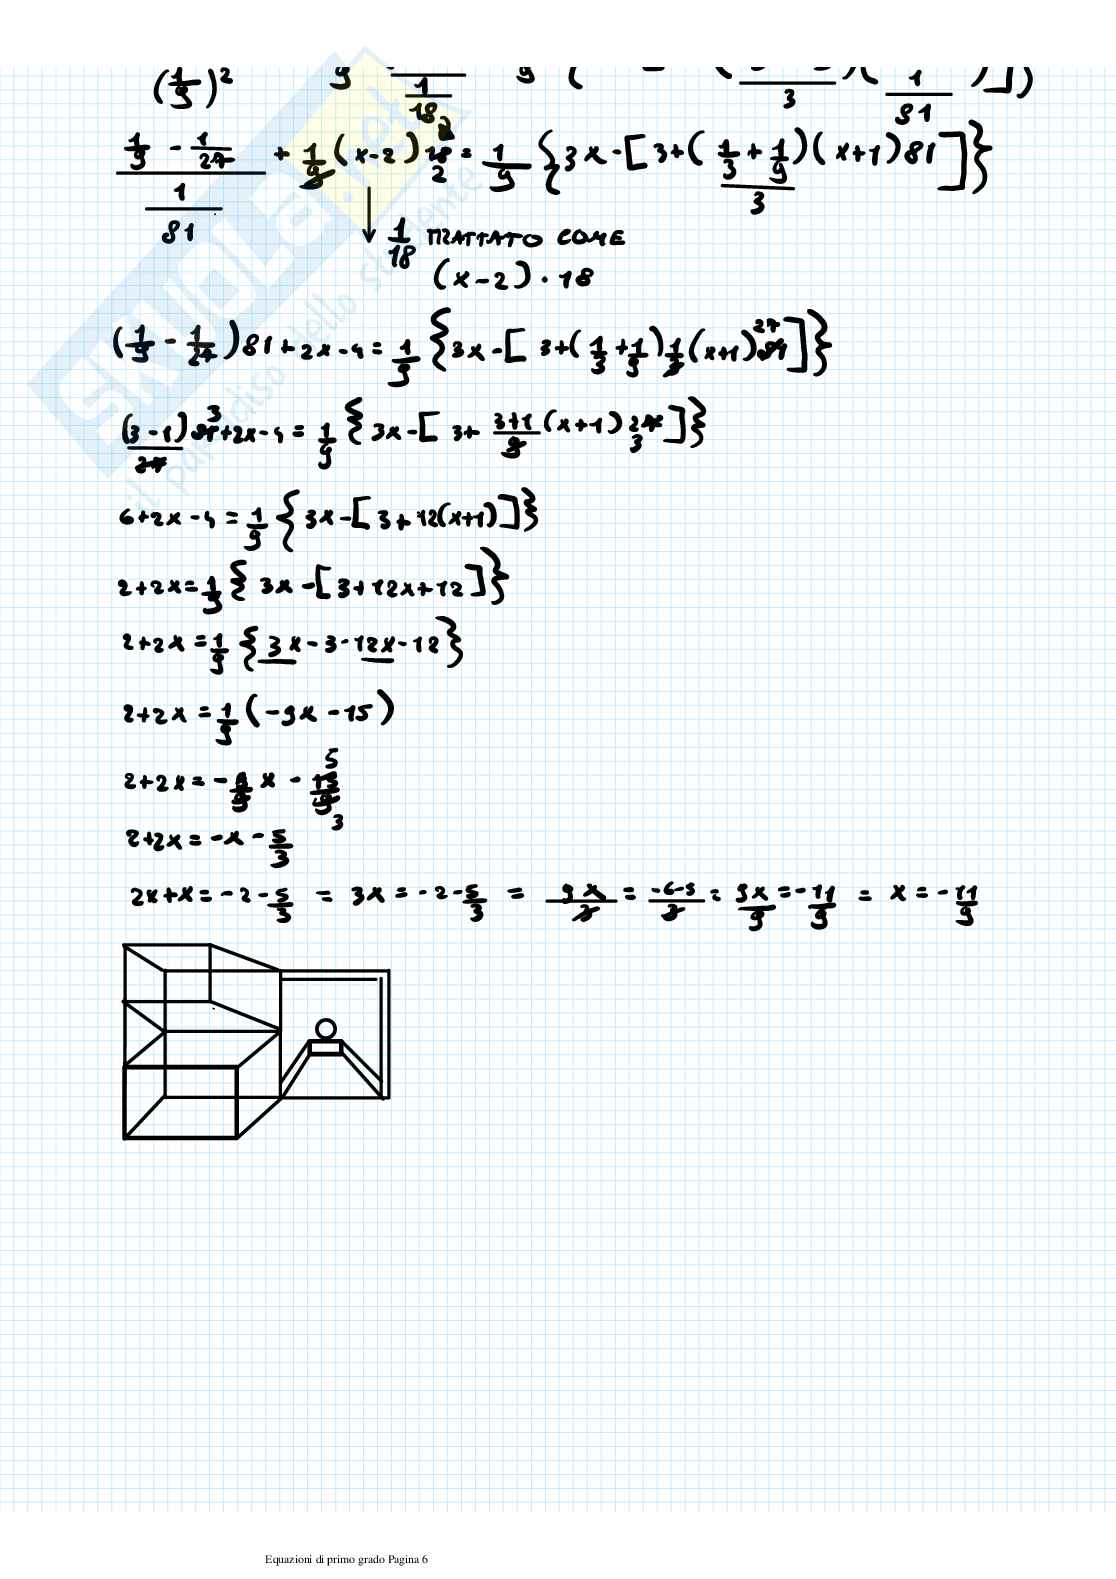 (1/9)²
1/18
3
1/81
(1/9 - 1/27)/(1/81) + 1/9 (x-2) 18 = 1/9 {3x - [3+( (1/3 + 1/9)/3 )(x+1) 81]}
2
1/18 TRATTATO COME
(x-2) · 18
(1/9 - 1/27) 81 + 2x - 4 = 1/9 {3x - [3+(1/3 + 1/9) 1/3 (x+1) 81]}
27
(3-1)/27 81 + 2x - 4 = 1/9 {3x - [3 + (3+1)/9 (x+1) 27]}
3
3
6+2x-4 = 1/9 {3x - [3+12(x+1)]}
2+2x = 1/9 {3x - [3+12x+12]}
2+2x = 1/9 {3x-3-12x-12}
2+2x = 1/9 (-9x-15)
2+2x = -9/9 x - 15/9
5
3
2+2x = -x - 5/3
2x+x = -2 - 5/3 = 3x = -2 - 5/3 = 9x/3 = (-6-5)/3 = 9x/9 = -11/9 = x = -11/9
SKUOLA.net
il paradiso dello studente
Equazioni di primo grado Pagina 6